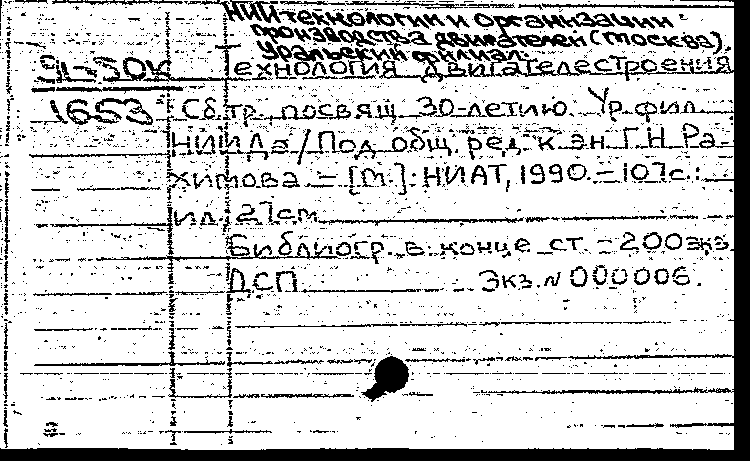 НИИ технологии и организации
производства двигателей (Москва).
Уральский филиал.
91-30к ехнология двигателестроения
1653 Сб. тр., посвящ. 30-летию Ур. фил.
НИИДа / Под общ. ред. к. э. н. Г. Н. Ра-
химова. - [М.]: НИАТ, 1990. - 107с.:
ил.; 21см
Библиогр. в конце ст. - 200экз.
ДСП. Экз. № 000006.